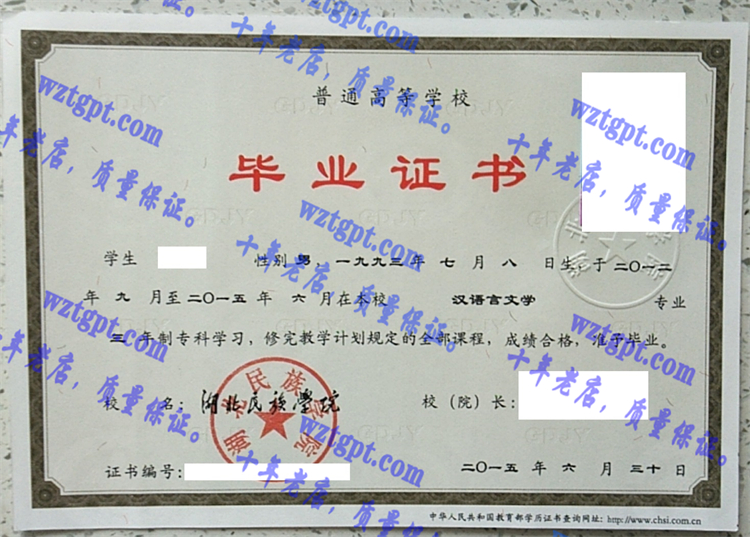 普通高等学校
毕业证书
学生 性别 男，一九九三年 七 月 八 日生，于二〇一二
年 九 月至二〇一五年 六 月在本校 汉语言文学 专业
三 年制专科学习，修完教学计划规定的全部课程，成绩合格，准予毕业。
校 名：湖北民族学院 校（院）长：
湖北民族学院
证书编号： 二〇一五 年 六 月 三十日
中华人民共和国教育部学历证书查询网址：http://www.chsi.com.cn
wztgpt.com
十年老店，质量保证。
wztgpt.com
十年老店，质量保证。
wztgpt.com
十年老店，质量保证。
wztgpt.com
十年老店，质量保证。
wztgpt.com
十年老店，质量保证。
wztgpt.com
十年老店，质量保证。
wztgpt.com
十年老店，质量保证。